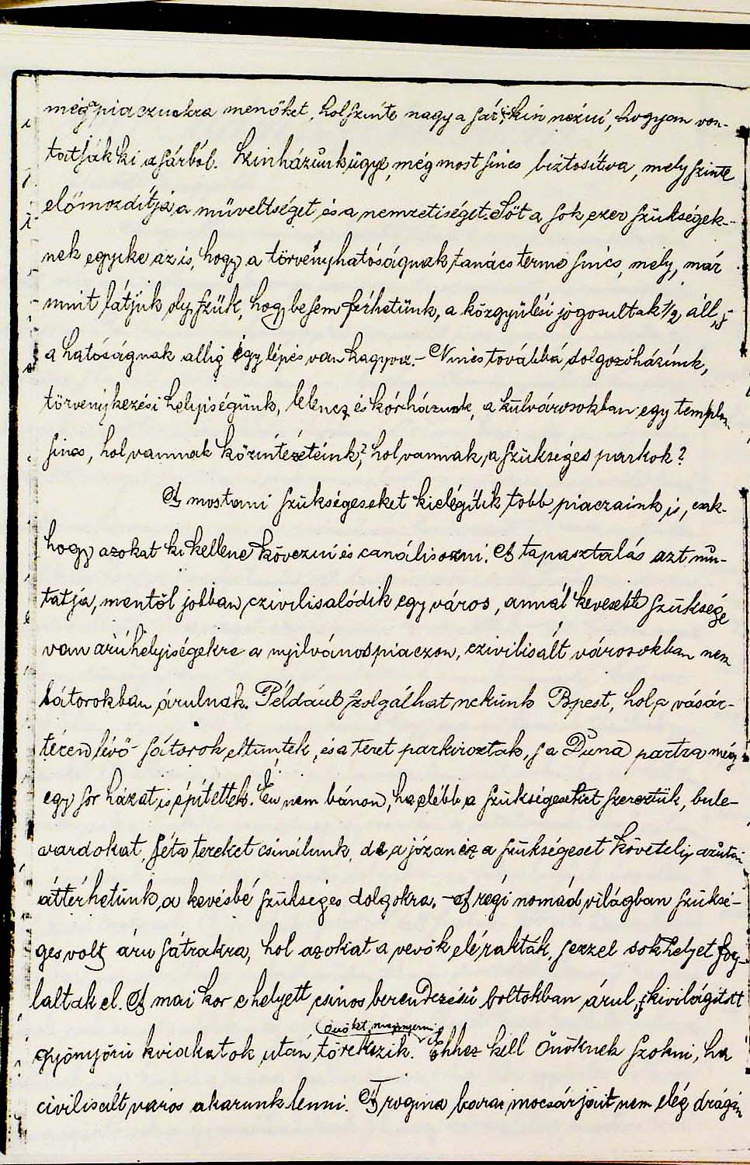 még piaczunkra menőket, hol szinte nagy a sár, s kin nézni, hogyan von-
tatják ki a sárból. Szinházunk ügye, még most sincs biztositva, mely szinte
előmozdítja a műveltséget és a nemzetiséget. Sőt a sok ezer szükségek-
nek egyike az is, hogy a törvényhatóságnak tanács terme sincs, mely, már
mint látjuk oly szük, hogy be sem férhetünk, a közgyülési jogosultak 1/2 áll, s
a hatóságnak allig egy lépés van hagyva. – Nincs továbbá dolgozóházunk,
törvenykezési helyiségünk, lelencz és kórházunk, a külvárosokban egy templom
sincs, hol vannak közintézeteink, hol vannak, a szükséges parkok?
A mostani szükségeseket kielégítik több piaczaink is, csak-
hogy azokat ki kellene kövezni és canálisozni. A tapasztalás azt mu-
tatja, mentől jobban czivilisalódik egy város, annál kevesebb szüksége
van áruhelyiségekre a nyilvános piaczon, czivilisált városokban nem
sátorokban árulnak. Például szolgálhat nekünk Bpest, hol a vásár-
téren lévő sátorok eltüntek, és a teret parkirozták, s a Duna partra még
egy sor házat is építettek. Én nem bánom, ha előbb a szükségeseket szerezzük, bule-
vardokat, séta tereket csinálunk, de a józan ész a szükségeset követeli, azután
áttérhetünk, a kevésbé szükséges dolgokra. – A régi nomád világban szüksé-
ges volt áru sátrakra, hol azokat a vevők elé rakták, s ezzel sok helyet fog-
laltak el. A mai kor e helyett csinos berendezésü boltokban árul, s kivilágitott
gyönyörü kirakatok után (önöket megnyerni) törekszik. Ehhez kell Önöknek szokni, ha
civilisált város akarunk lenni. A rogina barai mocsár jait nem elég drágán